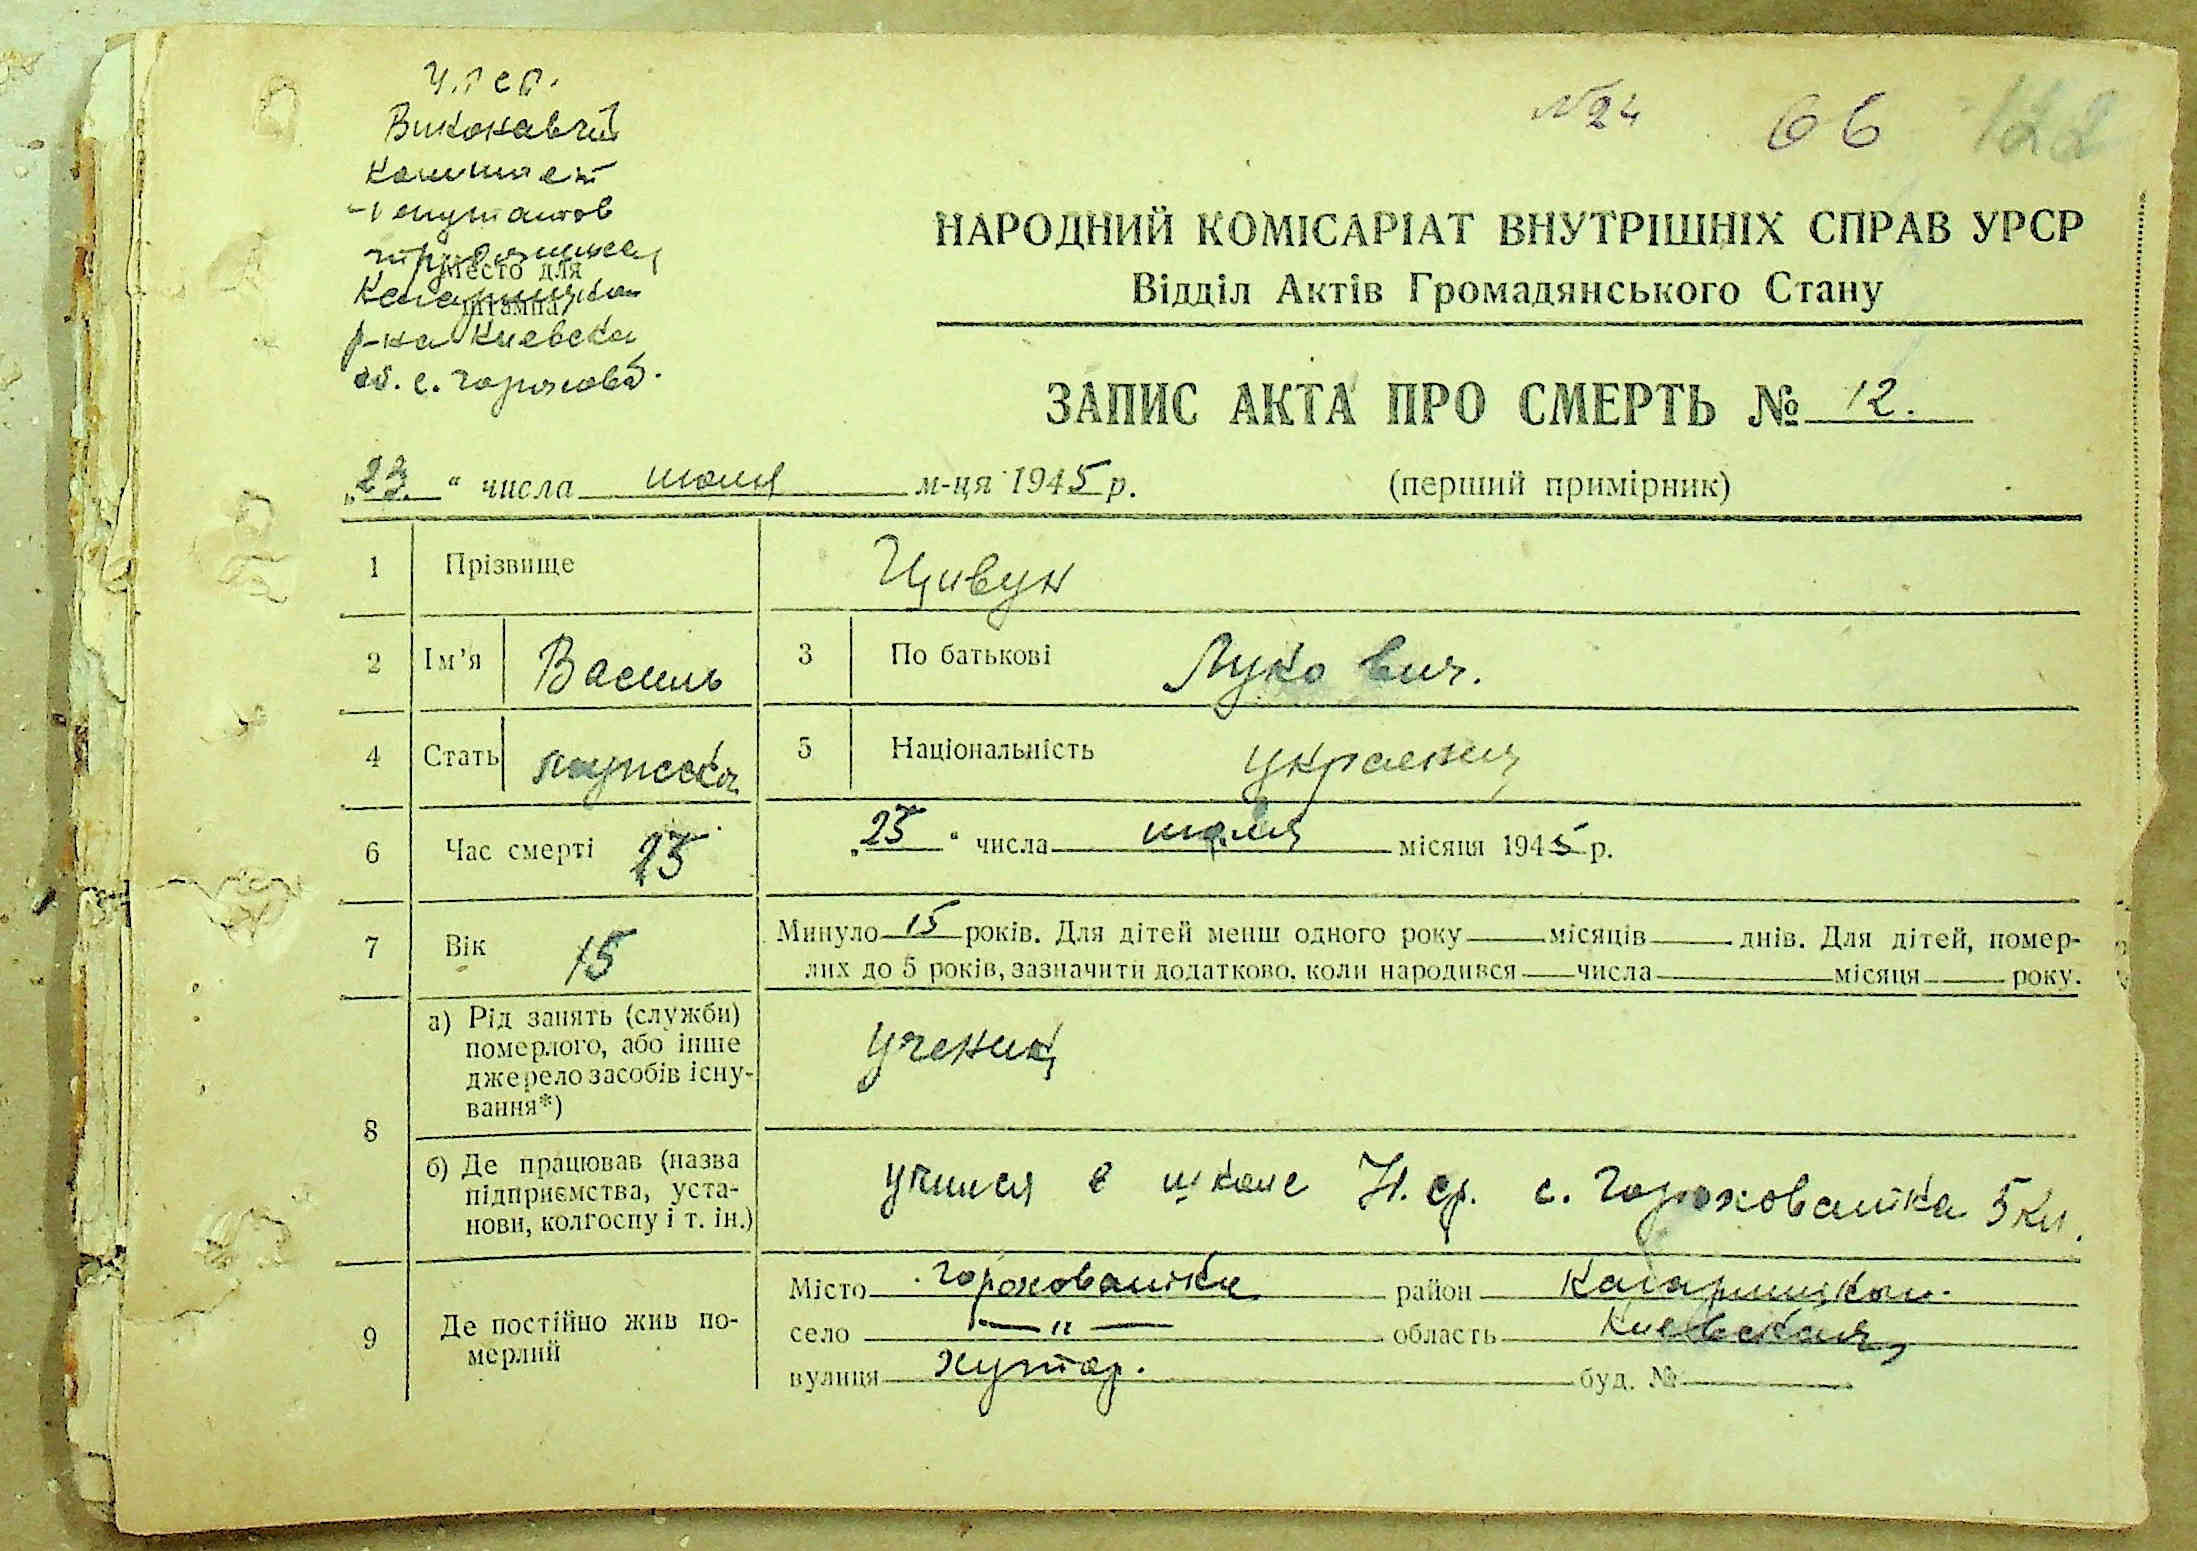 У.Р.С.Р.
Виконавчий
Комитет
Депутатов
трудящихся
Место для
штампа
Кагарлицкаго
р-на Киевска
об. с. Горохова
№24 66 122
НАРОДНИЙ КОМІСАРІАТ ВНУТРІШНІХ СПРАВ УРСР
Відділ Актів Громадянського Стану
ЗАПИС АКТА ПРО СМЕРТЬ № 12.
„23“ числа июля м-ця 1945 р. (перший примірник)
1 Прізвище Цивун
2 Ім’я Василь 3 По батькові Лукович.
4 Стать мужска 5 Національність украенец
6 Час смерті 25 „25“ числа июля місяця 1945 р.
7 Вік 15 Минуло 15 років. Для дітей менш одного року місяців днів. Для дітей, помер-
лих до 5 років, зазначити додатково, коли народився числа місяця року.
8 а) Рід занять (служби)
померлого, або інше
джерело засобів існу-
вання*)
ученик
б) Де працював (назва
підприємства, уста-
нови, колгоспу і т. ін.)
учился в школе Н. ср. с. Гороховатка 5 кл.
9 Де постійно жив по-
мерлий
Місто Гороховатка район Кагарлицкаи.
село —"— область Киевская
вулиця хутор. буд. №